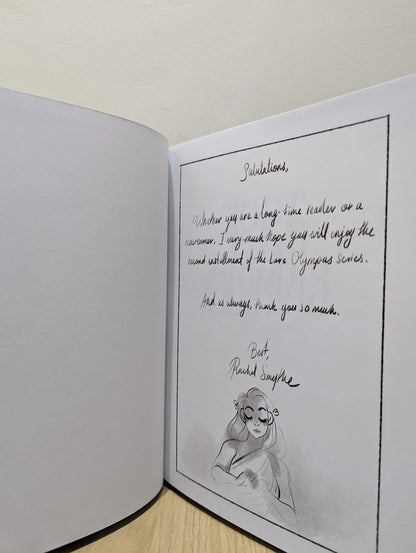 Salutations,
Whether you are a long-time reader or a
newcomer, I very much hope you will enjoy the
second installment of the Lore Olympus series.
And as always, thank you so much.
Best,
Rachel Smythe